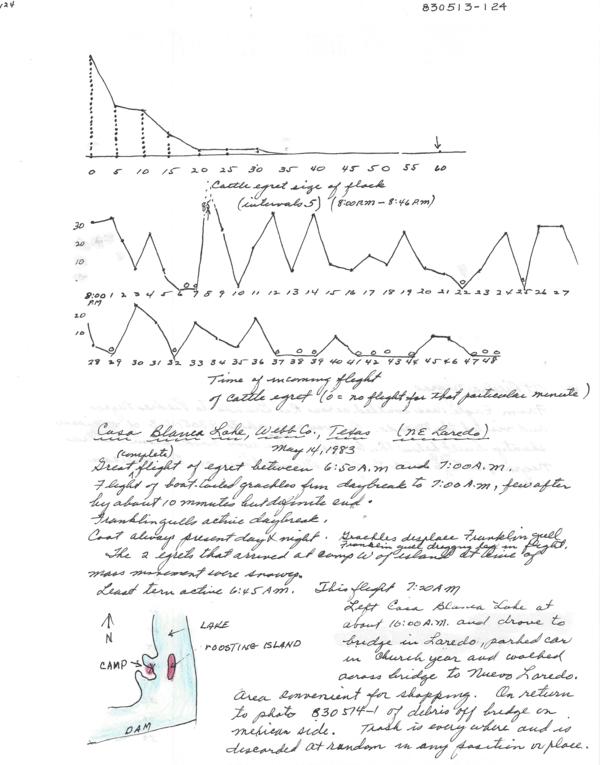 124
830513-124
0 5 10 15 20 25 30 35 40 45 50 55 60
Cattle egret size of flock
(intervals 5) (8:00 PM - 8:46 PM)
30
20
10
8:00 PM 1 2 3 4 5 6 7 8 9 10 11 12 13 14 15 16 17 18 19 20 21 22 23 24 25 26 27
20
10
28 29 30 31 32 33 34 35 36 37 38 39 40 41 42 43 44 45 46 47 48
Time of incoming flight
of Cattle egret (0 = no flight for that particular minute)
Casa Blanca Lake, Webb Co., Texas (NE Laredo)
(complete) May 14, 1983
Great flight of egret between 6:50 A.m and 7:00 A.m.
Flight of boat-tailed grackles from daybreak to 7:00 A.m, few after
by about 10 minutes but definite end.
Franklin gulls active daybreak.
Coot always present day & night. Grackles displace Franklin gull
Franklin gull dragging leg in flight.
The 2 egrets that arrived at camp W of island at time of
mass movement were snowy.
Least tern active 6:45 A.m. This flight 7:20 A.M
Left Casa Blanca Lake at
about 10:00 A.M. and drove to
bridge in Laredo, parked car
in Church year and walked
across bridge to Nuevo Laredo.
Area convenient for shopping. On return
to photo 830514-1 of debris off bridge on
mexican side. Trash is every where and is
discarded at random in any position or place.
N
LAKE
ROOSTING ISLAND
CAMP
DAM